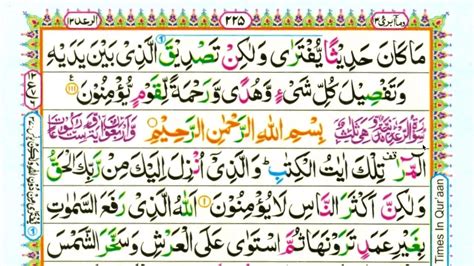 وما ابرئ ۱۳
۲۲۵
الرعد ۱۳
مَا كَانَ حَدِيْثًا يُّفْتَرٰى وَلٰكِنْ تَصْدِيْقَ الَّذِيْ بَيْنَ يَدَيْهِ
وَتَفْصِيْلَ كُلِّ شَيْءٍ وَّهُدًى وَّرَحْمَةً لِّقَوْمٍ يُّؤْمِنُوْنَ
بِسْمِ اللّٰهِ الرَّحْمٰنِ الرَّحِيْمِ
الٓمّٓرٰ تِلْكَ اٰيٰتُ الْكِتٰبِ وَالَّذِيْۤ اُنْزِلَ اِلَيْكَ مِنْ رَّبِّكَ الْحَقُّ
وَلٰكِنَّ اَكْثَرَ النَّاسِ لَا يُؤْمِنُوْنَ ۱ اَللّٰهُ الَّذِيْ رَفَعَ السَّمٰوٰتِ
بِغَيْرِ عَمَدٍ تَرَوْنَهَا ثُمَّ اسْتَوٰى عَلَى الْعَرْشِ وَسَخَّرَ الشَّمْسَ
Times In Qur'aan